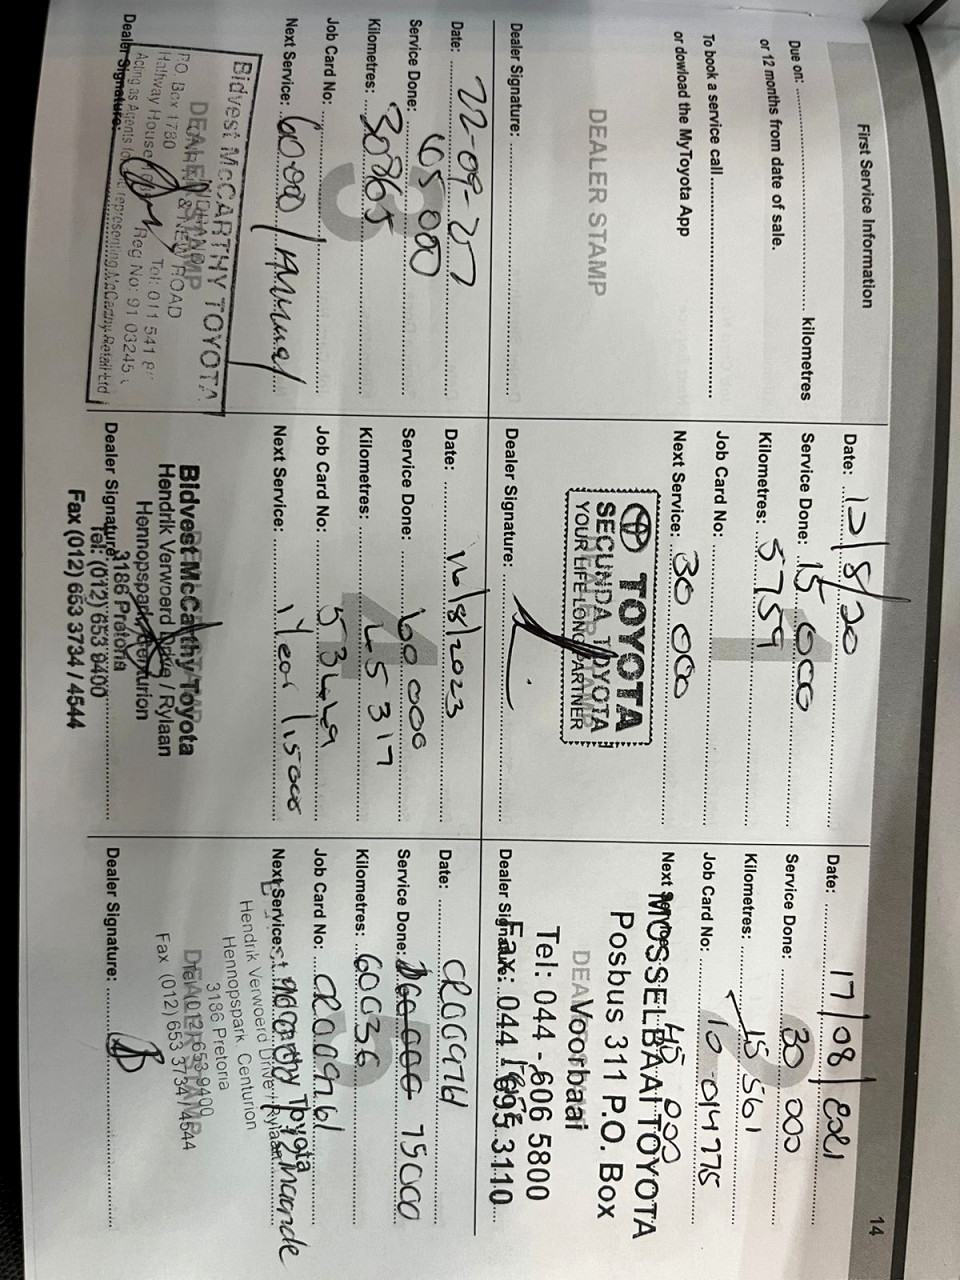 14
First Service Information
Due on: ........ kilometres
or 12 months from date of sale.
To book a service call........
or dowload the MyToyota App
DEALER STAMP
Dealer Signature:
Date: 12/8/20
Service Done: 15 000
Kilometres: 5759
Job Card No:
Next Service: 30 000
TOYOTA
SECUNDA TOYOTA
YOUR LIFE-LONG PARTNER
Dealer Signature:
Date: 17/08/2021
Service Done: 30 000
Kilometres: 15561
Job Card No: 10-014775
Next Service: 45 000
MOSSELBAAI TOYOTA
Posbus 311 P.O. Box
Voorbaai
Tel: 044 - 606 5800
Fax: 044 695 3110
Dealer Signature:
3
Date: 22-09-27
Service Done: 45 000
Kilometres: 30865
Job Card No:
Next Service: 60000/Annual
Bidvest McCARTHY TOYOTA
DEALER STAMP
P.O. Box 1780
& NEW ROAD
Halfway House
Tel: 011 541
Reg No: 91 03245
Acting as Agents representing McCarthy Retail Ltd
Dealer Signature:
4
Date: 16/8/2023
Service Done: 60 000
Kilometres: 45317
Job Card No:
Next Service: 1 Year / 15000
Bidvest McCarthy Toyota
Hendrik Verwoerd Drive / Rylaan
Hennopspark Centurion
3186 Pretoria
Tel: (012) 653 9400
Fax (012) 653 3734 / 4544
Dealer Signature:
5
Date:
Service Done: 75000
Kilometres: 60036
Job Card No:
Next Service: 90 000 / 12 maande
McCarthy Toyota
Hendrik Verwoerd Drive / Rylaan
Hennopspark Centurion
3186 Pretoria
Tel (012) 653 9400
Fax (012) 653 3734 / 4544
DEALER STAMP
Dealer Signature: